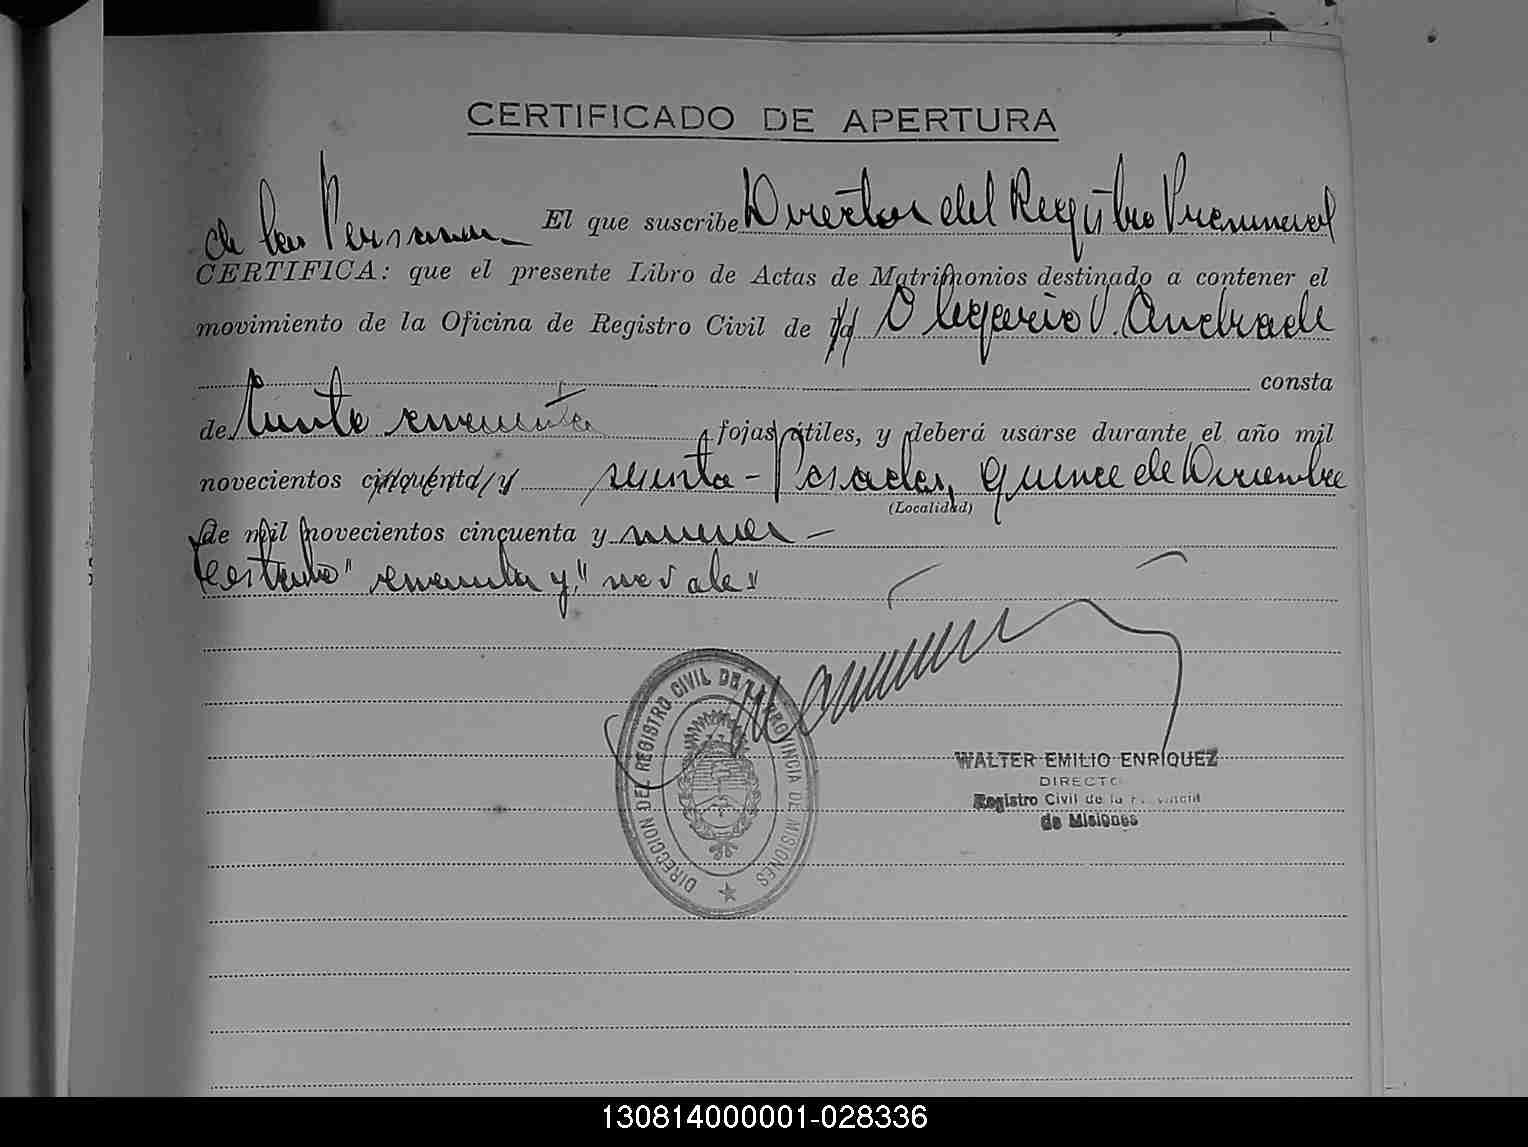 CERTIFICADO DE APERTURA
de las Personas El que suscribe Director del Registro Provincial
CERTIFICA: que el presente Libro de Actas de Matrimonios destinado a contener el
movimiento de la Oficina de Registro Civil de Olegario V. Andrade
consta
de ciento cincuenta fojas útiles, y deberá usarse durante el año mil
novecientos cincuenta y sesenta - Posadas, quince de Diciembre
(Localidad)
de mil novecientos cincuenta y nueve -
Testado "cincuenta y" no vale
DIRECCION DEL REGISTRO CIVIL DE LA PROVINCIA DE MISIONES
WALTER EMILIO ENRIQUEZ
DIRECTO
Registro Civil de la Provincia
de Misiones
130814000001-028336